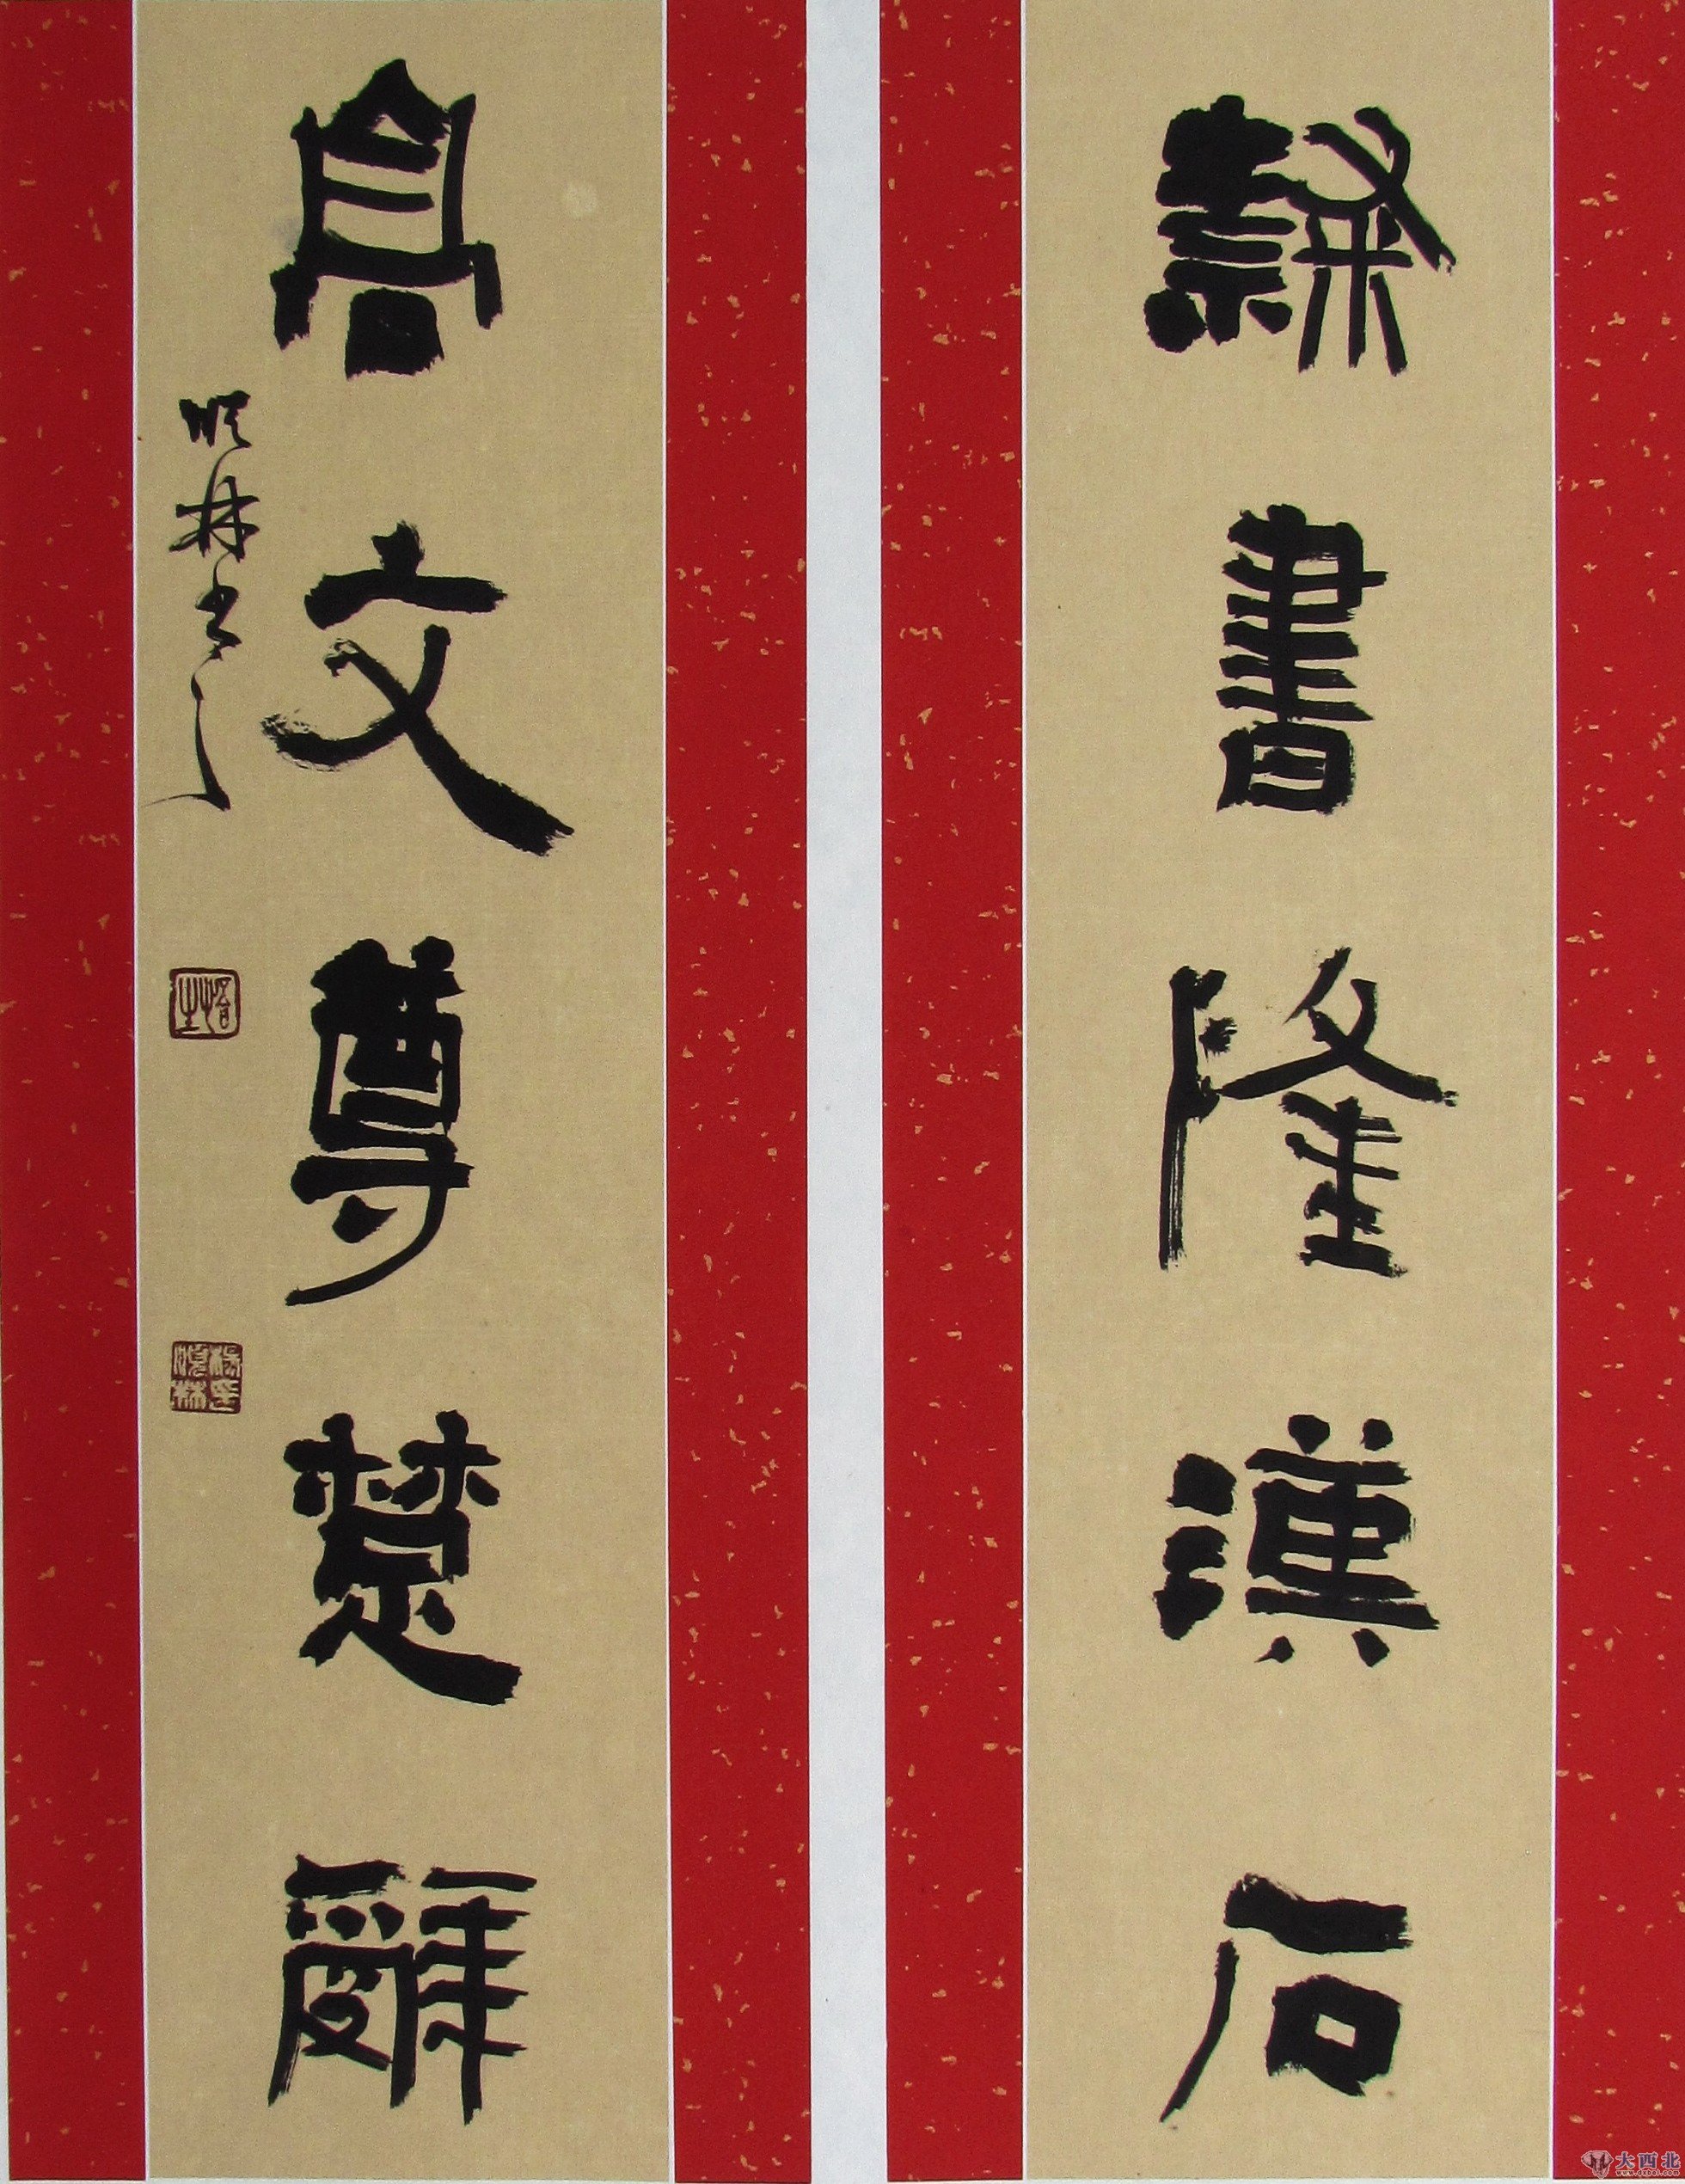 隸書隆漢石
高文尊楚辭
順林書
大西北